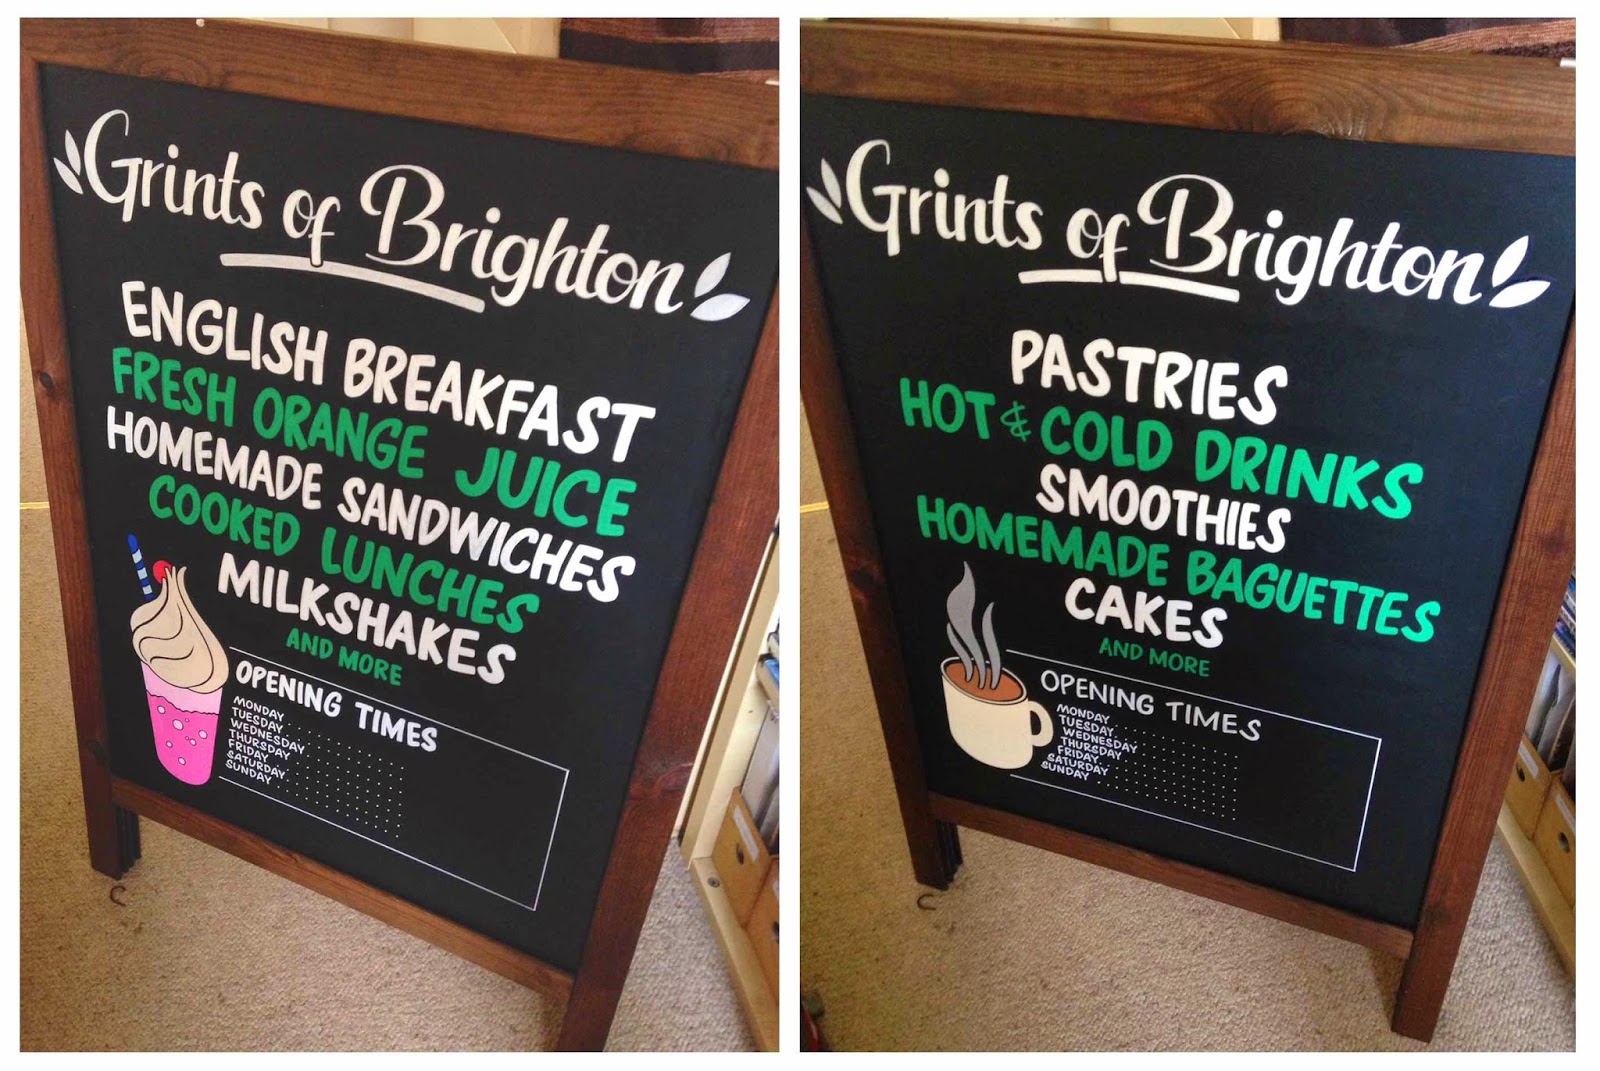 Grints of Brighton
ENGLISH BREAKFAST
FRESH ORANGE JUICE
HOMEMADE SANDWICHES
COOKED LUNCHES
MILKSHAKES
AND MORE
OPENING TIMES
MONDAY
TUESDAY
WEDNESDAY
THURSDAY
FRIDAY
SATURDAY
SUNDAY
Grints of Brighton
PASTRIES
HOT & COLD DRINKS
SMOOTHIES
HOMEMADE BAGUETTES
CAKES
AND MORE
OPENING TIMES
MONDAY
TUESDAY
WEDNESDAY
THURSDAY
FRIDAY
SATURDAY
SUNDAY